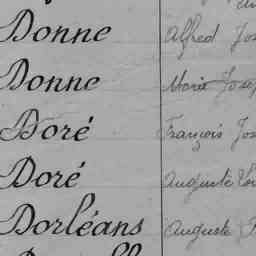 Donne Alfred
Donne Marie
Doré François
Doré Auguste
Dorléans Auguste